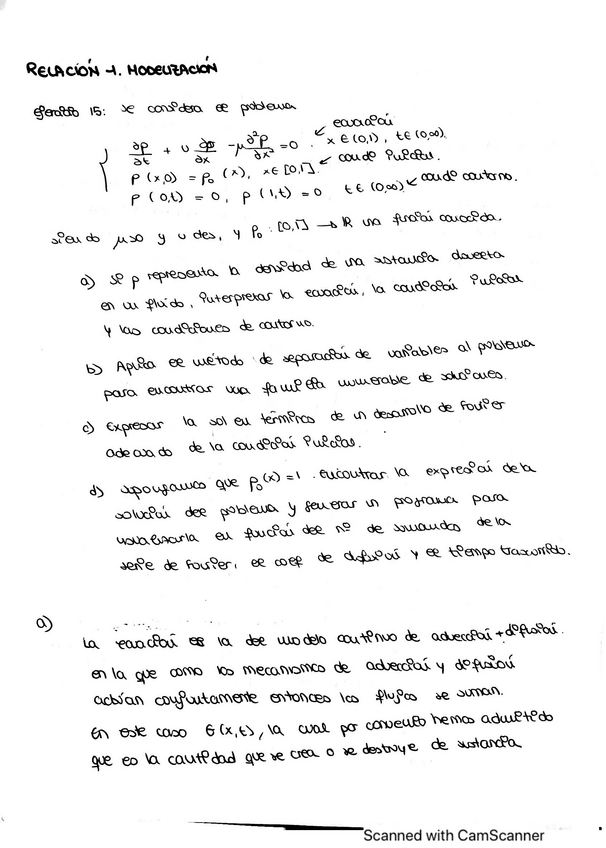 RELACIÓN -1. MODELIZACIÓN
Ejercicio 15: se considera el problema
∂p/∂t + u ∂p/∂x - μ ∂²p/∂x² = 0 ← ecuación x ∈ (0,1), t ∈ (0,∞).
p(x,0) = p₀(x), x ∈ [0,1] ← condº inicial.
p(0,t) = 0, p(1,t) = 0 t ∈ (0,∞) ← condº contorno.
siendo μ>0 y u des, y p₀: [0,1] → ℝ una función conocida.
a) si p representa la densidad de una sustancia disuelta
en un fluido, interpretar la ecuación, la condición inicial
y las condiciones de contorno.
b) Aplica el método de separación de variables al problema
para encontrar una familia numerable de soluciones.
c) Expresar la sol en términos de un desarrollo de Fourier
adecuado de la condición inicial.
d) supongamos que p₀(x)=1 encontrar la expresión de la
solución del problema y generar un programa para
visualizarla en función del nº de sumandos de la
serie de Fourier, el coef de difusión y el tiempo transcurrido.
a)
La ecuación es la del modelo continuo de advección+difusión.
en la que como los mecanismos de advección y difusión
actúan conjuntamente entonces los flujos se suman.
En este caso G(x,t), la cual por convenio hemos admitido
que es la cantidad que se crea o se destruye de sustancia
Scanned with CamScanner